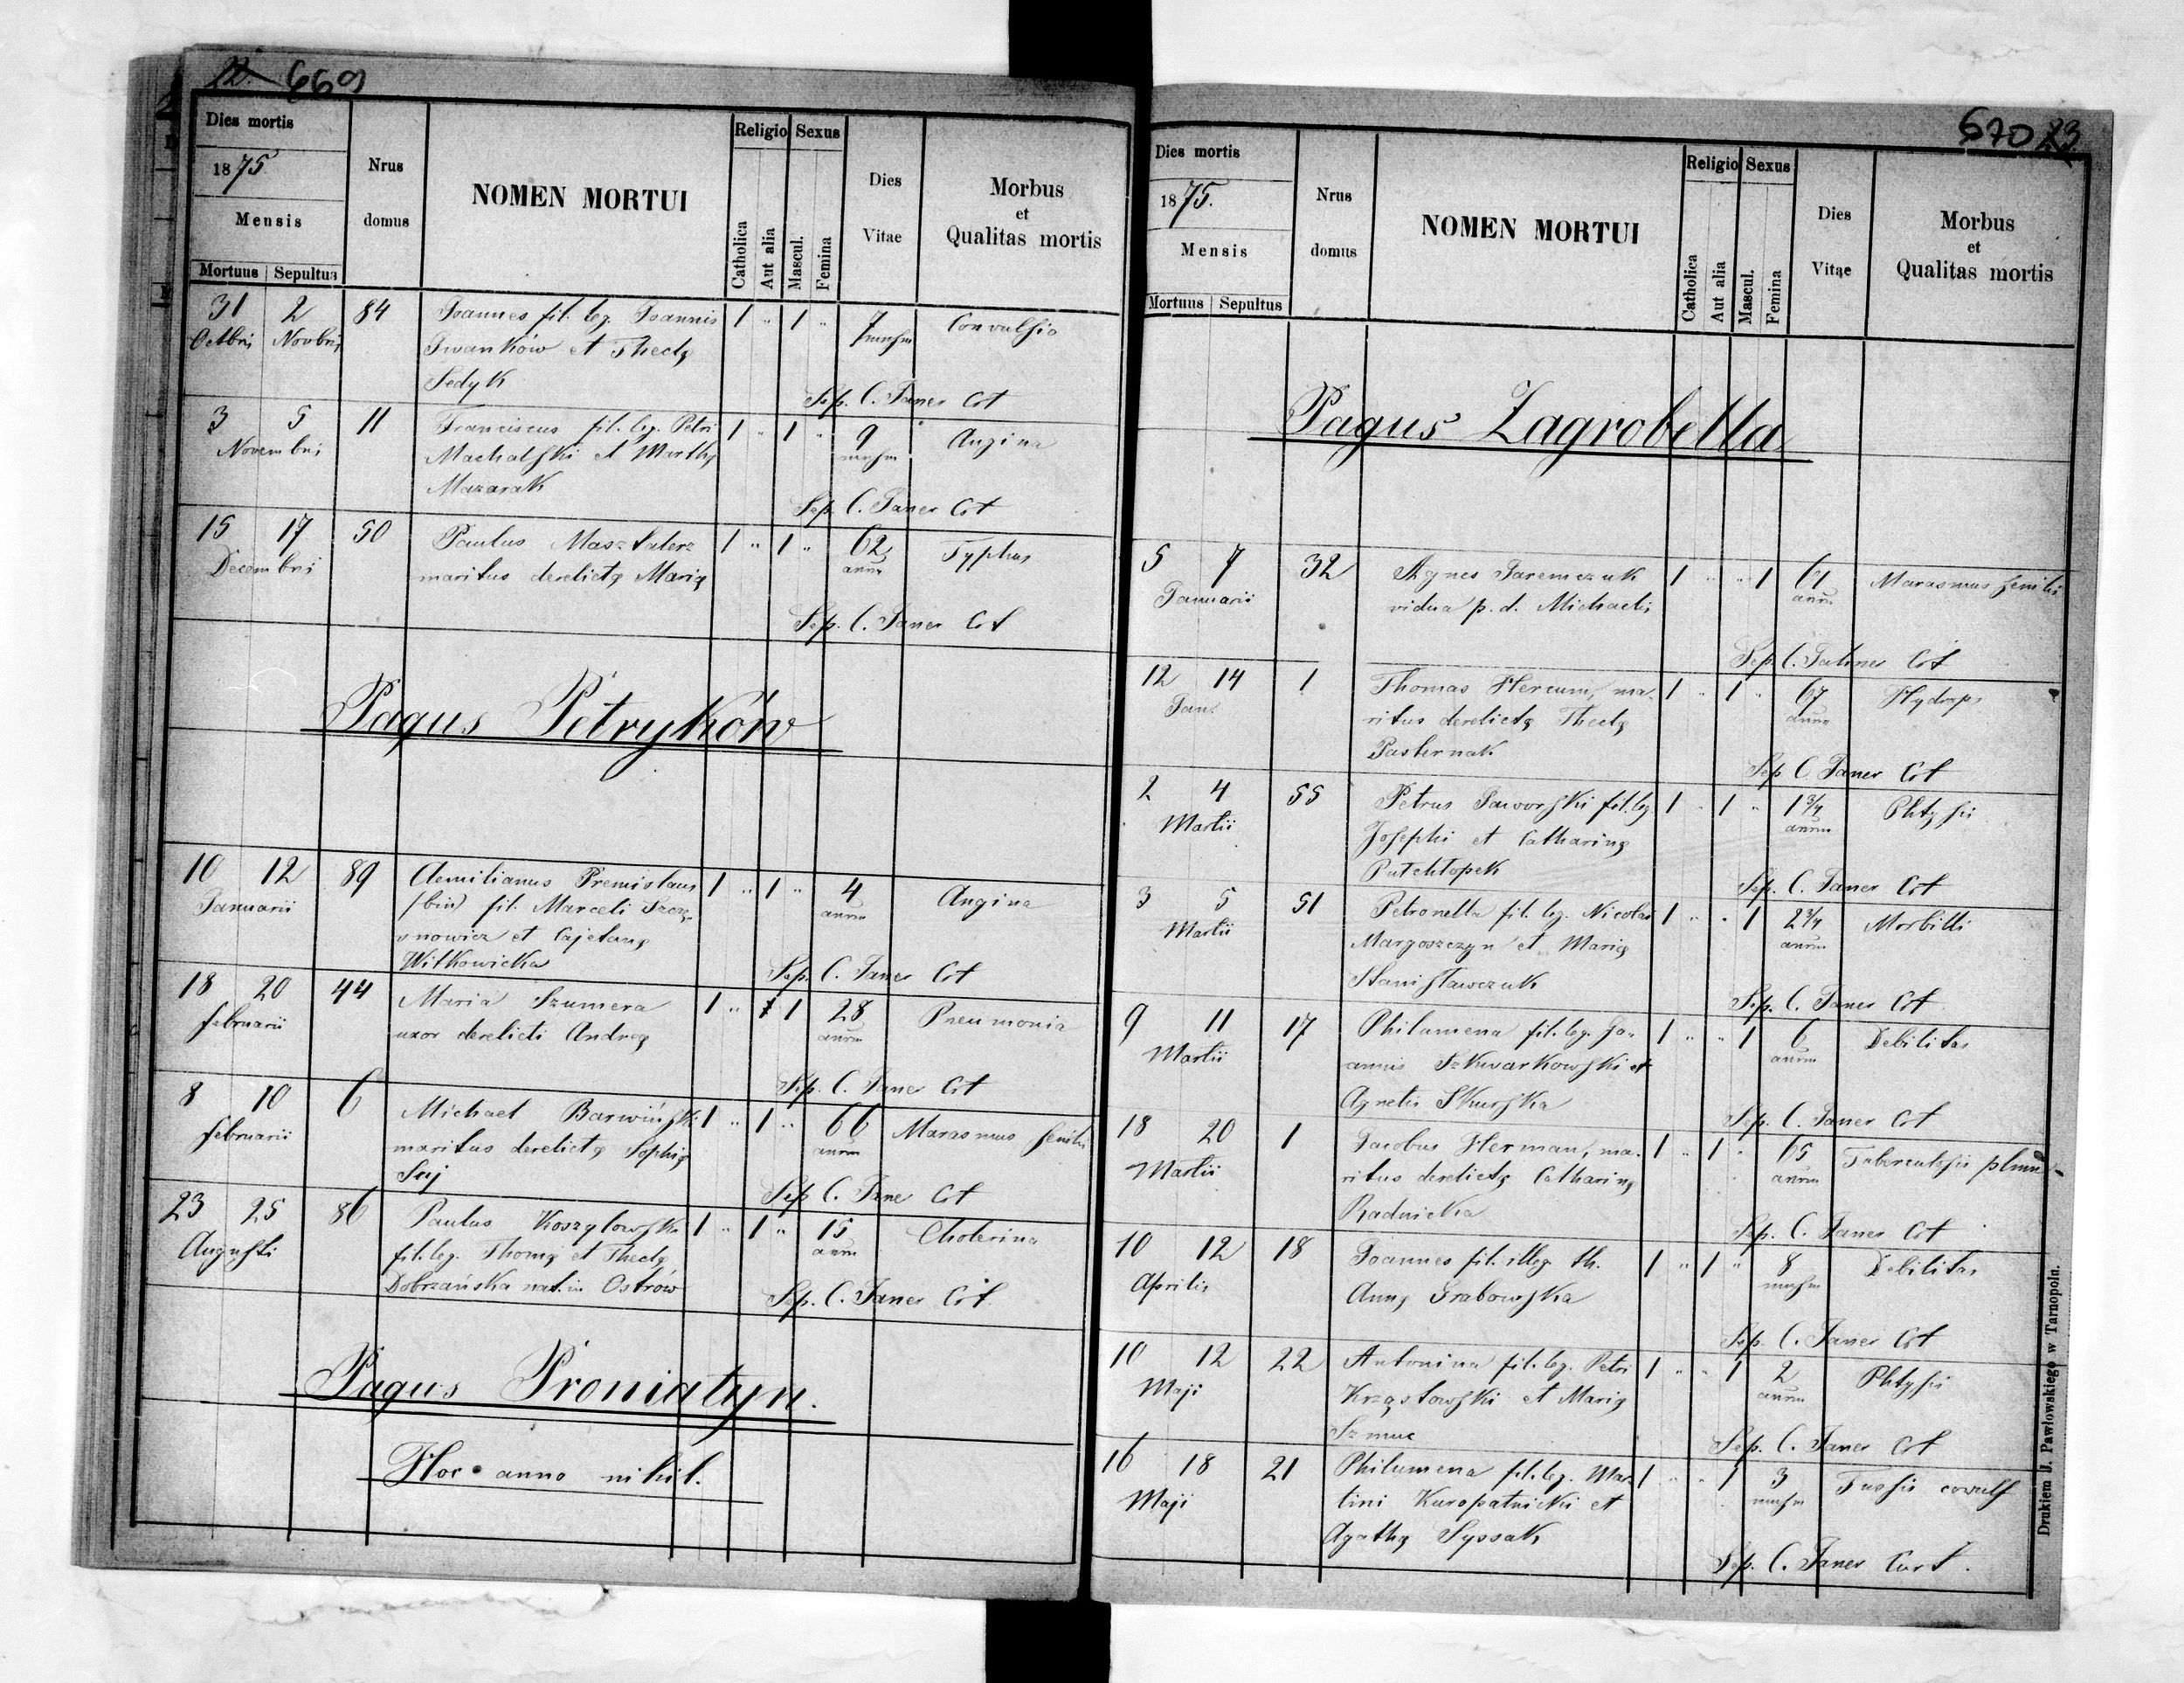 669
Dies mortis
1875
Mensis
Mortuus Sepultus
Nrus
domus
NOMEN MORTUI
Religio
Catholica
Aut alia
Sexus
Mascul.
Femina
Dies
Vitae
Morbus
et
Qualitas mortis
31 2 84 Joannes fil. leg. Joannis 1 " 1 " 7 Convulsio
Octbris Novbris Iwanków et Theclę
Sedyk
Sep. C. Janer Cot
3 5 11 Franciscus fil. leg. Petri 1 " 1 " 9 Angina
Novembris Machalski et Marthę
Mazarak
Sep. C. Janer Cot
15 17 50 Paulus Masztalerz 1 " 1 " 62 Typhus
Decembris maritus derelictę Marię annor
Sep. C. Janer Cot
Pagus Petryków
10 12 89 Aemilianus Premislaus 1 " 1 " 4 Angina
Januarii (bin) fil. Marceli annor
et Cajetanę
Witkowicka
Sep. C. Janer Cot
18 20 44 Maria Szumera 1 " 1 28 Pneumonia
februarii uxor derelicti Andreę annor
Sep. C. Janer Cot
8 10 6 Michael Barwiński 1 " 1 " 66 Marasmus senilis
februarii maritus derelictę Sophię annor
Sep C. Janer Cot
23 25 86 Paulus Koszylowski 1 " 1 " 15 Cholerina
Augusti fil. leg. Thomę et Theclę annor
Dobrzańska nat. in Ostrów
Sep. C. Janer Cot.
Pagus Proniatyn.
Hoc anno nihil.
670 23
Dies mortis
1875.
Mensis
Mortuus Sepultus
Nrus
domus
NOMEN MORTUI
Religio
Catholica
Aut alia
Sexus
Mascul.
Femina
Dies
Vitae
Morbus
et
Qualitas mortis
Pagus Zagrobella
5 7 32 Agnes Jaremczuk 1 " " 1 Marasmus senilis
Januarii vidua p. d. Michaelis annor
Sep. C. Cot
12 14 1 Thomas ma- 1 " 1 " 67 Hydrops
Jan. ritus derelictę Theclę annor
Pasternak
Sep C. Janer Cot
2 4 55 Petrus Jaworski fil. leg 1 " 1 " 1 3/4 Phtysis
Martii Josephi et Catharinę annor
Putchłopek
Sep. C. Janer Cot
3 5 51 Petronella fil. leg. Nicolai 1 " " 1 2 3/4 Morbilli
Martii Margoszczyn et Marię annor
Stanisławczuk
Sep. C. Janer Cot
9 11 17 Philumena fil. leg. Jo- 1 " " 1 6 Debilitas
Martii annis Szkwarkowski et annor
Agnetis Skurska
Sep. C. Janer Cot
18 20 1 Jacobus Herman, ma- 1 " 1 " 65 Tuberculosis
Martii ritus derelictę Catharinę annor
Radnicka
Sep. C. Janer Cot
10 12 18 Joannes fil. illeg. th. 1 " 1 " 8 Debilitas
Aprilis Annę Grabowska
Sep. C. Janer Cot
10 12 22 Antonina fil. leg. Petri 1 " " 1 2 Phtysis
Maji Krząstowski et Marię annor
Szmuc
Sep. C. Janer Cot
16 18 21 Philumena fil. leg. Mar- 1 " " 1 3 Tussis convuls
Maji tini Kuropatnicki et
Agathę Syssak
Sep. C. Janer Cot.
Drukiem J. Pawłowskiego w Tarnopolu.